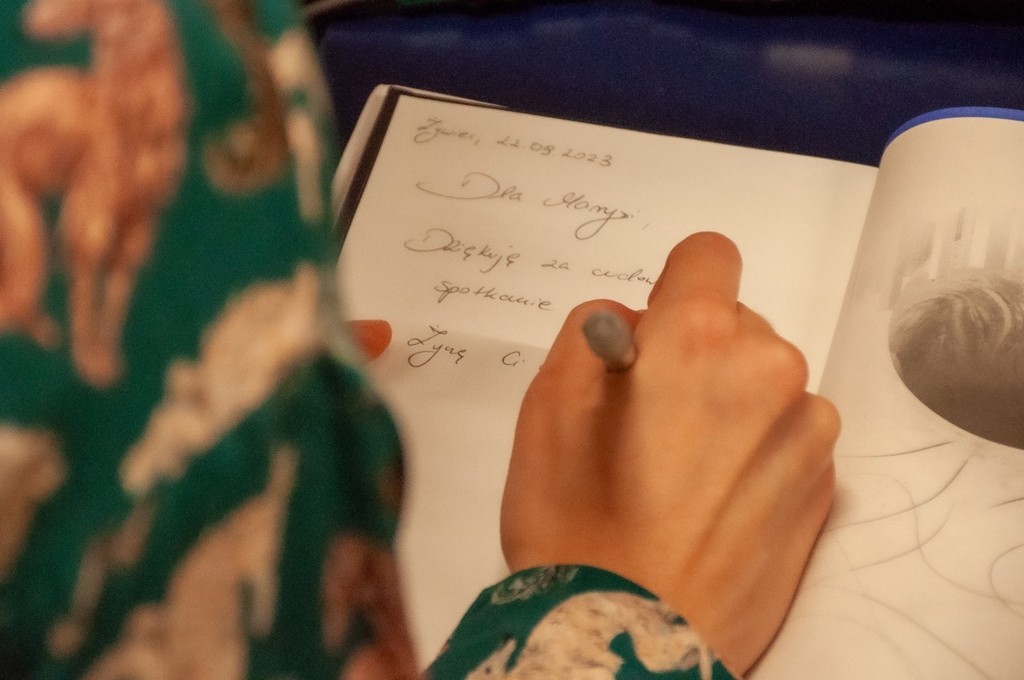 Żywiec, 22.09.2023
Dla Marysi,
Dziękuję za cudow
spotkanie
Życzę Ci